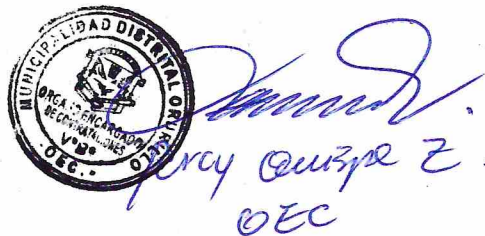 MUNICIPALIDAD DISTRITAL ORURILLO
ORGANO ENCARGADO
DE CONTRATACIONES
V°B°
OEC.
Percy Quispe Z.
OEC